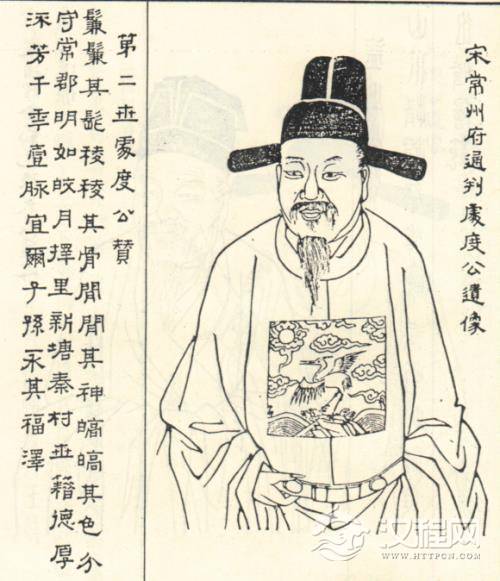 宋常州府通判處度公遺像
第二世處度公贊
鬑鬑其髭稜稜其骨誾誾其神皜皜其色分
守常郡明如皎月擇里新塘秦村世籍德厚
流芳千秊壹脉宜爾子孫永其福澤
汉程网
WWW.HTTPCN.COM